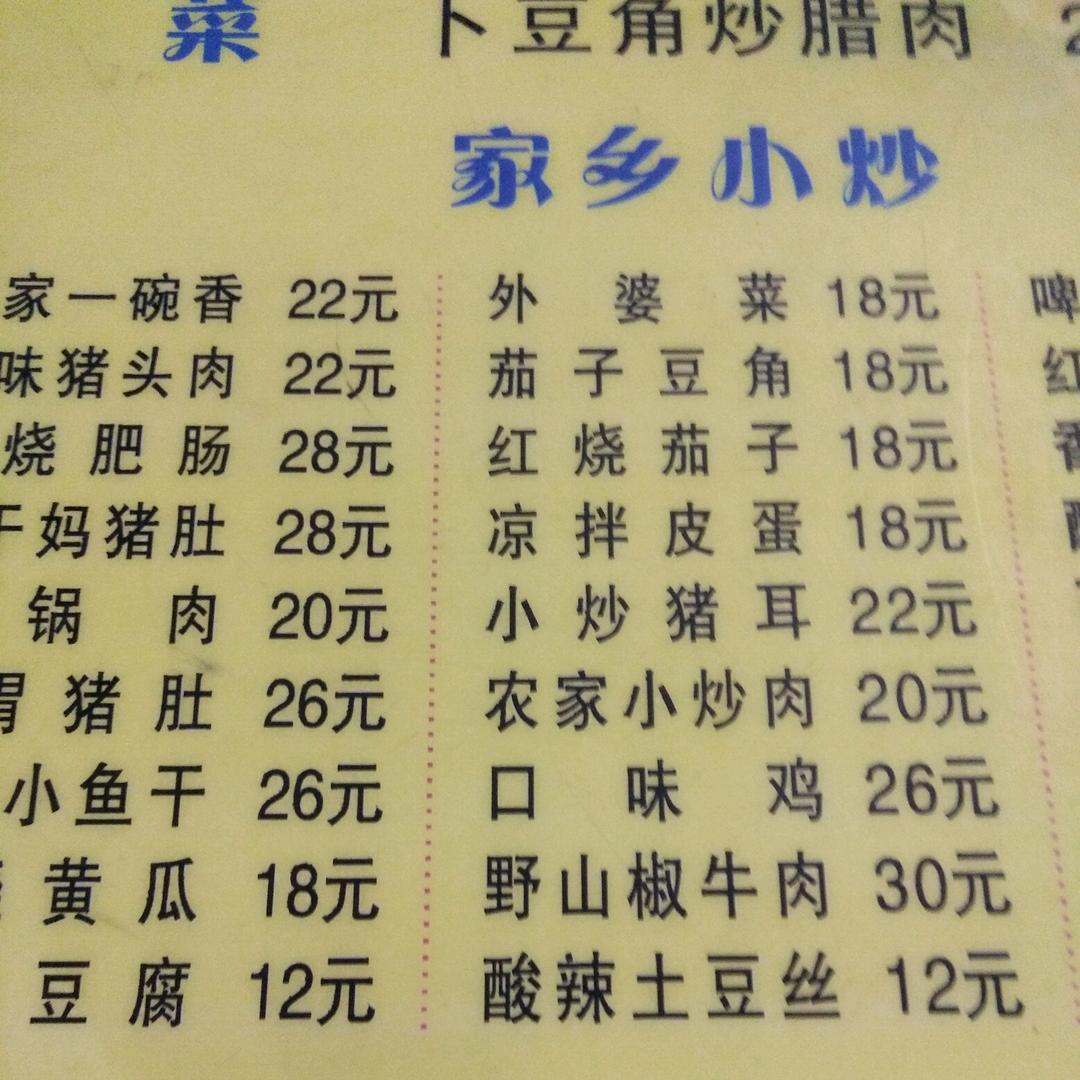 菜 卜豆角炒腊肉
家乡小炒
家一碗香 22元 外婆菜 18元
味猪头肉 22元 茄子豆角 18元 红
烧肥肠 28元 红烧茄子 18元 香
干妈猪肚 28元 凉拌皮蛋 18元
锅肉 20元 小炒猪耳 22元
猪肚 26元 农家小炒肉 20元
小鱼干 26元 口味鸡 26元
黄瓜 18元 野山椒牛肉 30元
豆腐 12元 酸辣土豆丝 12元